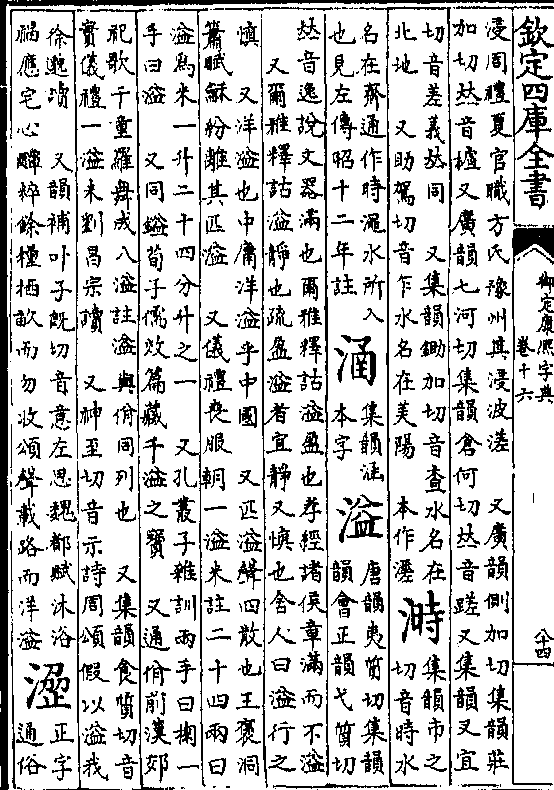 欽定四庫全書
御定康熙字典
卷十六
八十四
浸周禮夏官職方氏豫州其浸波溠 又廣韻側加切集韻莊
加切𠀤音樝又廣韻七河切集韻倉何切𠀤音蹉又集韻又宜
切音差義𠀤同 又集韻鋤加切音查水名在
北地 又助駕切音乍水名在美陽 本作
溡 集韻市之
切音時水
名在齊通作時澠水所入
也見左傳昭十二年註
㴠 集韻涵
本字
溢 唐韻夷質切集韻
韻會正韻弋質切
𠀤音逸說文器滿也爾雅釋詁溢盈也孝經諸侯章滿而不溢
又爾雅釋詁溢靜也疏盈溢者宜靜又慎也舍人曰溢行之
慎 又洋溢也中庸洋溢乎中國 又匹溢聲四散也王褒洞
簫賦蘇紛離其匹溢 又儀禮喪服朝一溢米註二十四兩曰
溢爲米一升二十四分升之一 又孔叢子雜訓兩手曰掬一
手曰溢 又同鎰荀子儒效篇藏千溢之寶 又通佾前漢郊
祀歌千童羅舞成八溢註溢與佾同列也 又集韻食質切音
實儀禮一溢米劉昌宗讀 又神至切音示詩周頌假以溢我
徐邈讀 又韻補叶于旣切音意左思魏都賦沐浴
福應宅心醰粹餘糧栖畝而勿收頌聲載路而洋溢
㴔 正字
通俗